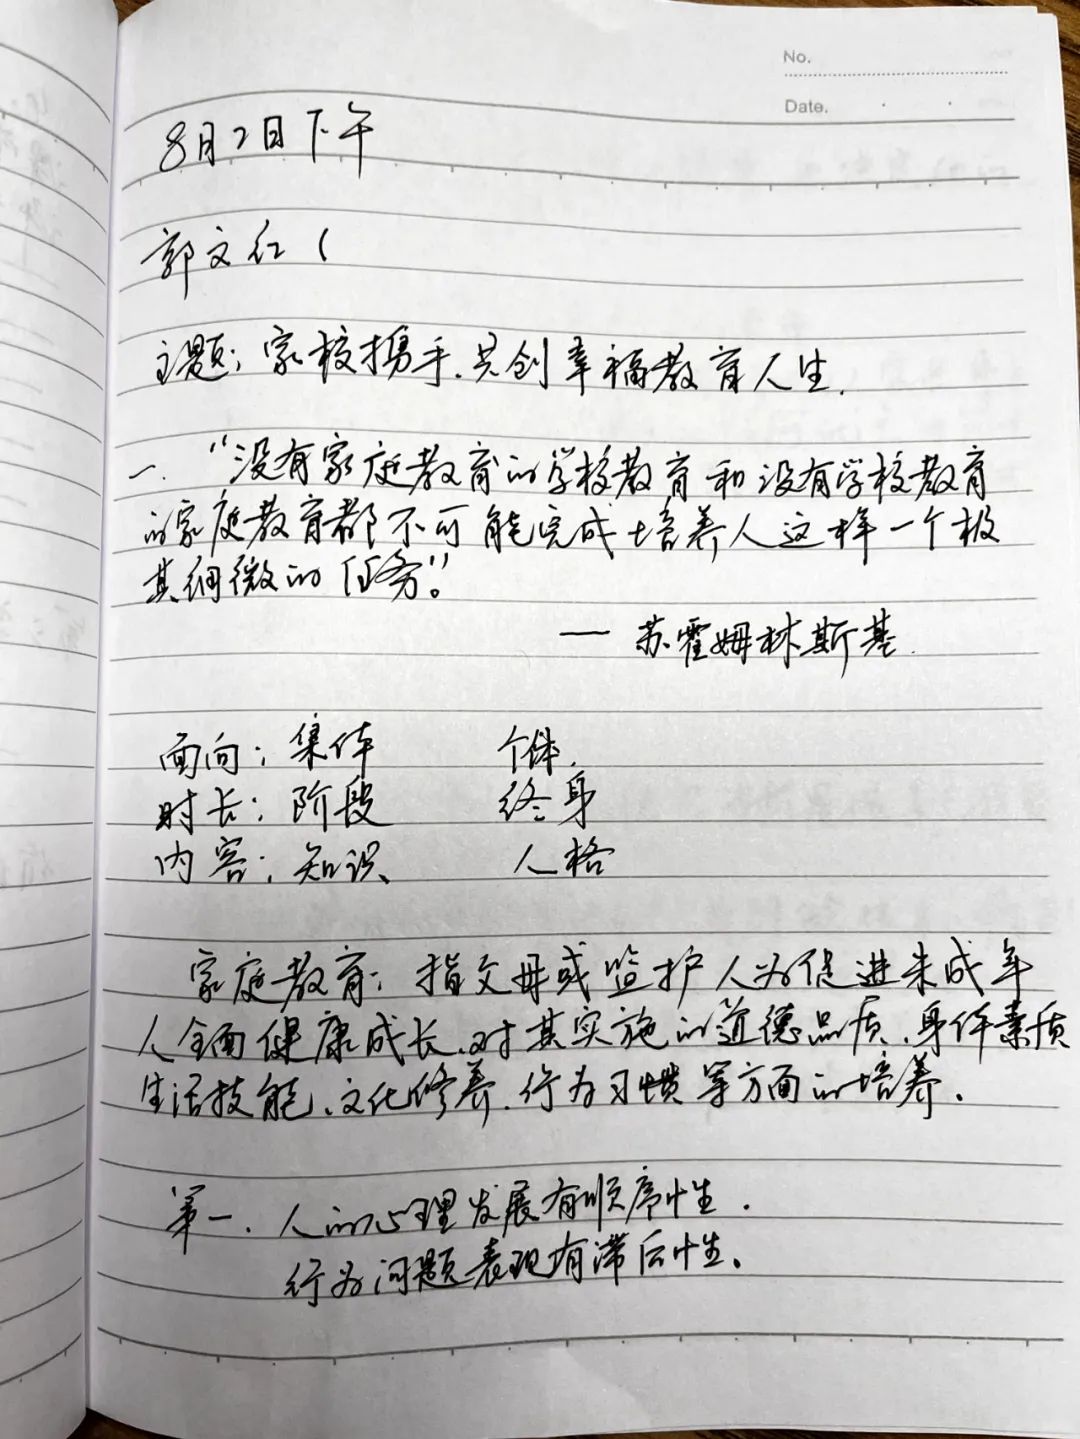 No.
Date.
8月2日下午
郭文红（
主题：家校携手，共创幸福教育人生．
一．“没有家庭教育的学校教育和没有学校教育
的家庭教育都不可能完成培养人这样一个极
其细微的任务”。
— 苏霍姆林斯基．
面向：集体 个体．
时长：阶段 终身
内容：知识 人格
家庭教育：指父母或监护人为促进未成年
人全面健康成长，对其实施的道德品质、身体素质
生活技能、文化修养、行为习惯等方面的培养．
第一．人的心理发展有顺序性．
行为问题表现有滞后性。